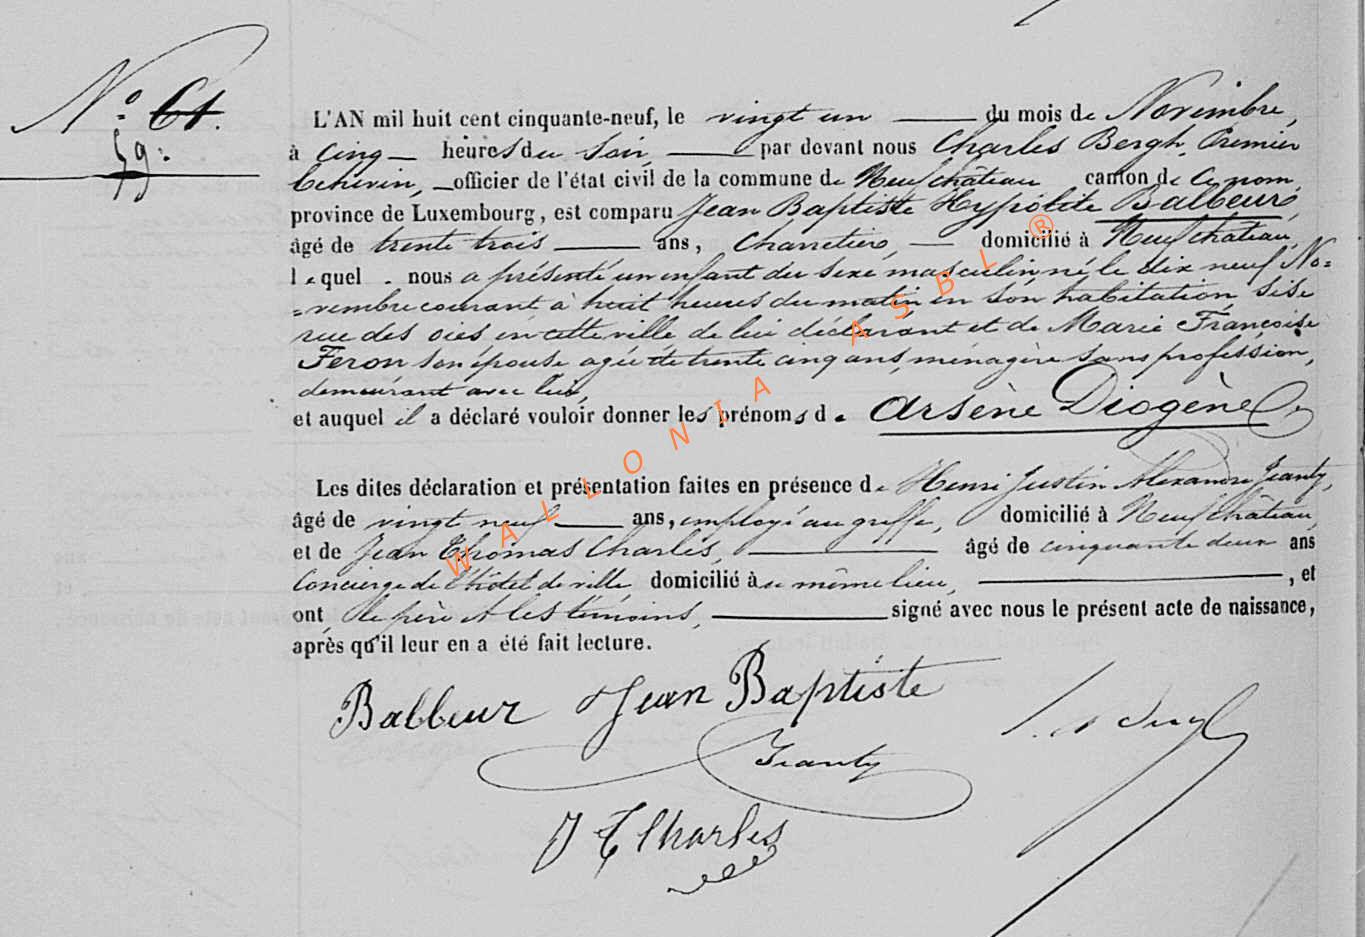 N° 61.
59:
L'AN mil huit cent cinquante-neuf, le vingt un du mois de Novembre,
à Cinq heures du Soir, par devant nous Charles Bergh, Premier
Echevin, officier de l'état civil de la commune de Neufchâteau canton de Ce nom,
province de Luxembourg, est comparu Jean Baptiste Hypolite Balbeur,
âgé de trente trois ans, Charretier, domicilié à Neufchâteau,
lequel nous a présenté un enfant du sexe masculin né le dix neuf No=
=vembre courant, à huit heures du matin en son habitation sise
rue des oies en cette ville de lui déclarant et de Marie Françoise
Feron son épouse agée de trente cinq ans, ménagère sans profession,
demeurant avec lui,
et auquel il a déclaré vouloir donner les prénoms de Arsène Diogène,
Les dites déclaration et présentation faites en présence de Henri Justin Alexandre Jeanty,
âgé de vingt neuf ans, employé au greffe, domicilié à Neufchâteau,
et de Jean Thomas Charles, âgé de cinquante deux ans
Concierge de l'hôtel de ville, domicilié au même lieu, et
ont, le père et les témoins, signé avec nous le présent acte de naissance,
après qu'il leur en a été fait lecture.
Balbeur Jean Baptiste
Jeanty
J T Charles
WALLONIA ASBL ®